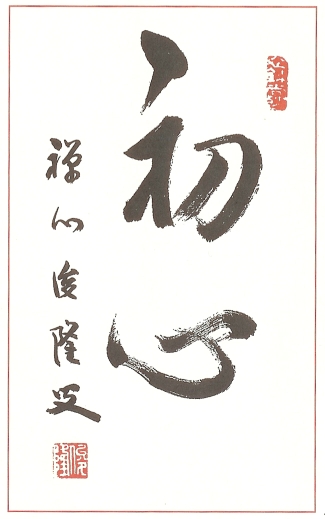 初心
禅心俊隆書